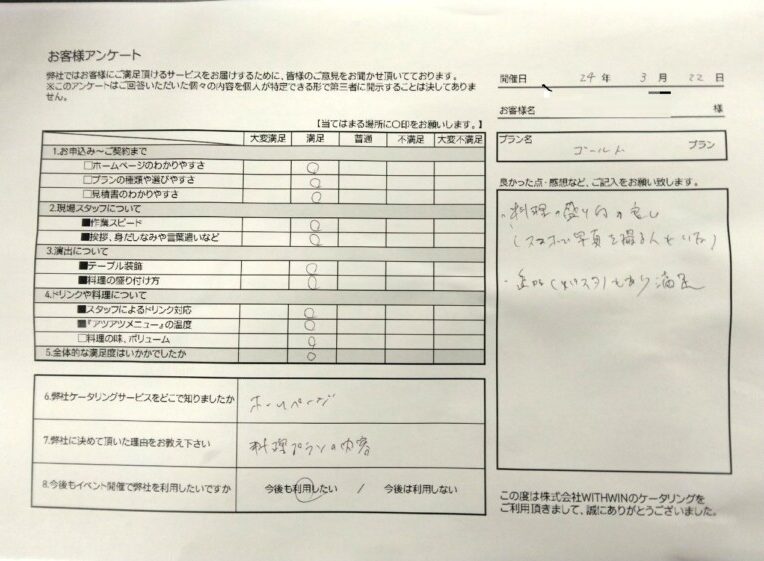 お客様アンケート
弊社ではお客様にご満足頂けるサービスをお届けするために、皆様のご意見をお聞かせ頂いております。
※このアンケートはご回答いただいた個々の内容を個人が特定できる形で第三者に開示することは決してありま
せん。
【当てはまる場所に〇印をお願いします。】
大変満足 満足 普通 不満足 大変不満足
1.お申込み～ご契約まで
□ホームページのわかりやすさ 〇
□プランの種類や選びやすさ 〇
□見積書のわかりやすさ 〇
2.現場スタッフについて
■作業スピード 〇
■挨拶、身だしなみや言葉遣いなど 〇
3.演出について
■テーブル装飾 〇
■料理の盛り付け方 〇
4.ドリンクや料理について
■スタッフによるドリンク対応 〇
■『アツアツメニュー』の温度 〇
□料理の味、ボリューム 〇
5.全体的な満足度はいかがでしたか 〇
6.弊社ケータリングサービスをどこで知りましたか ホームページ
7.弊社に決めて頂いた理由をお教え下さい 料理プランの内容
8.今後もイベント開催で弊社を利用したいですか 今後も利用したい / 今後は利用しない
開催日 24年 3月 22日
お客様名 様
プラン名 ゴールド プラン
良かった点・感想など、ご記入をお願い致します。
・料理の盛り付の良し
(スマホで写真を撮る人もいた)
満足
この度は株式会社WITHWINのケータリングを
ご利用頂きまして、誠にありがとうございました。